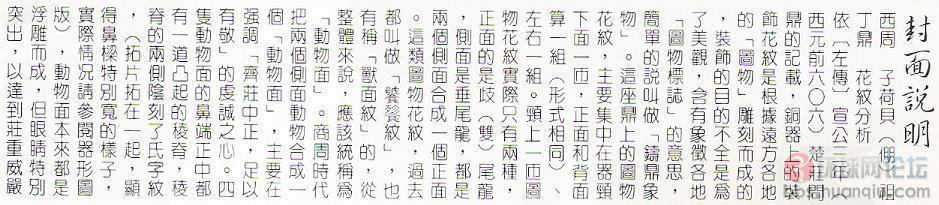 封面說明
西周　子荷貝（倗）祖
丁鼎　花紋分析
依〔左傳〕宣公三年（
西元前六〇六）楚莊問
鼎的記載，銅器上的裝
飾花紋是根據遠方各地
的「圖物」雕刻而成的
，裝飾的目的不全是為
了美觀，含有象徵各地
「圖物標誌」的意思，
簡單的說叫做「鑄鼎象
物」。這座鼎上的圖物
花紋，主要集中在器頸
下面一帀，正面和背面
算一組（形式相同）、
左右一組。頸上一帀圖
物花紋實際只有兩種，
正面的是歧（雙）尾龍
，側面是垂尾龍，都是
兩個側面合成一個正面
。（這類圖物花紋，過去
都叫做「饕餮紋」，也
有稱「獸面紋」的，從
整體來說，應該統稱為
「動物面」。商周時代
把兩個側面動物合成一
個「動物面」，主要在
强調「齊莊中正，足以
有敬」的虔誠之心。四
隻動物面的鼻端正中都
有一道凸起的稜脊，稜
脊的兩側陰刻了氏字紋
（拓拓在一起，顯
得鼻樑特別寬的樣子，
實際情況請參閱器形圖
版），動物面本來都是
浮雕而成，但眼睛特別
突出，以達到莊重威嚴
网论坛